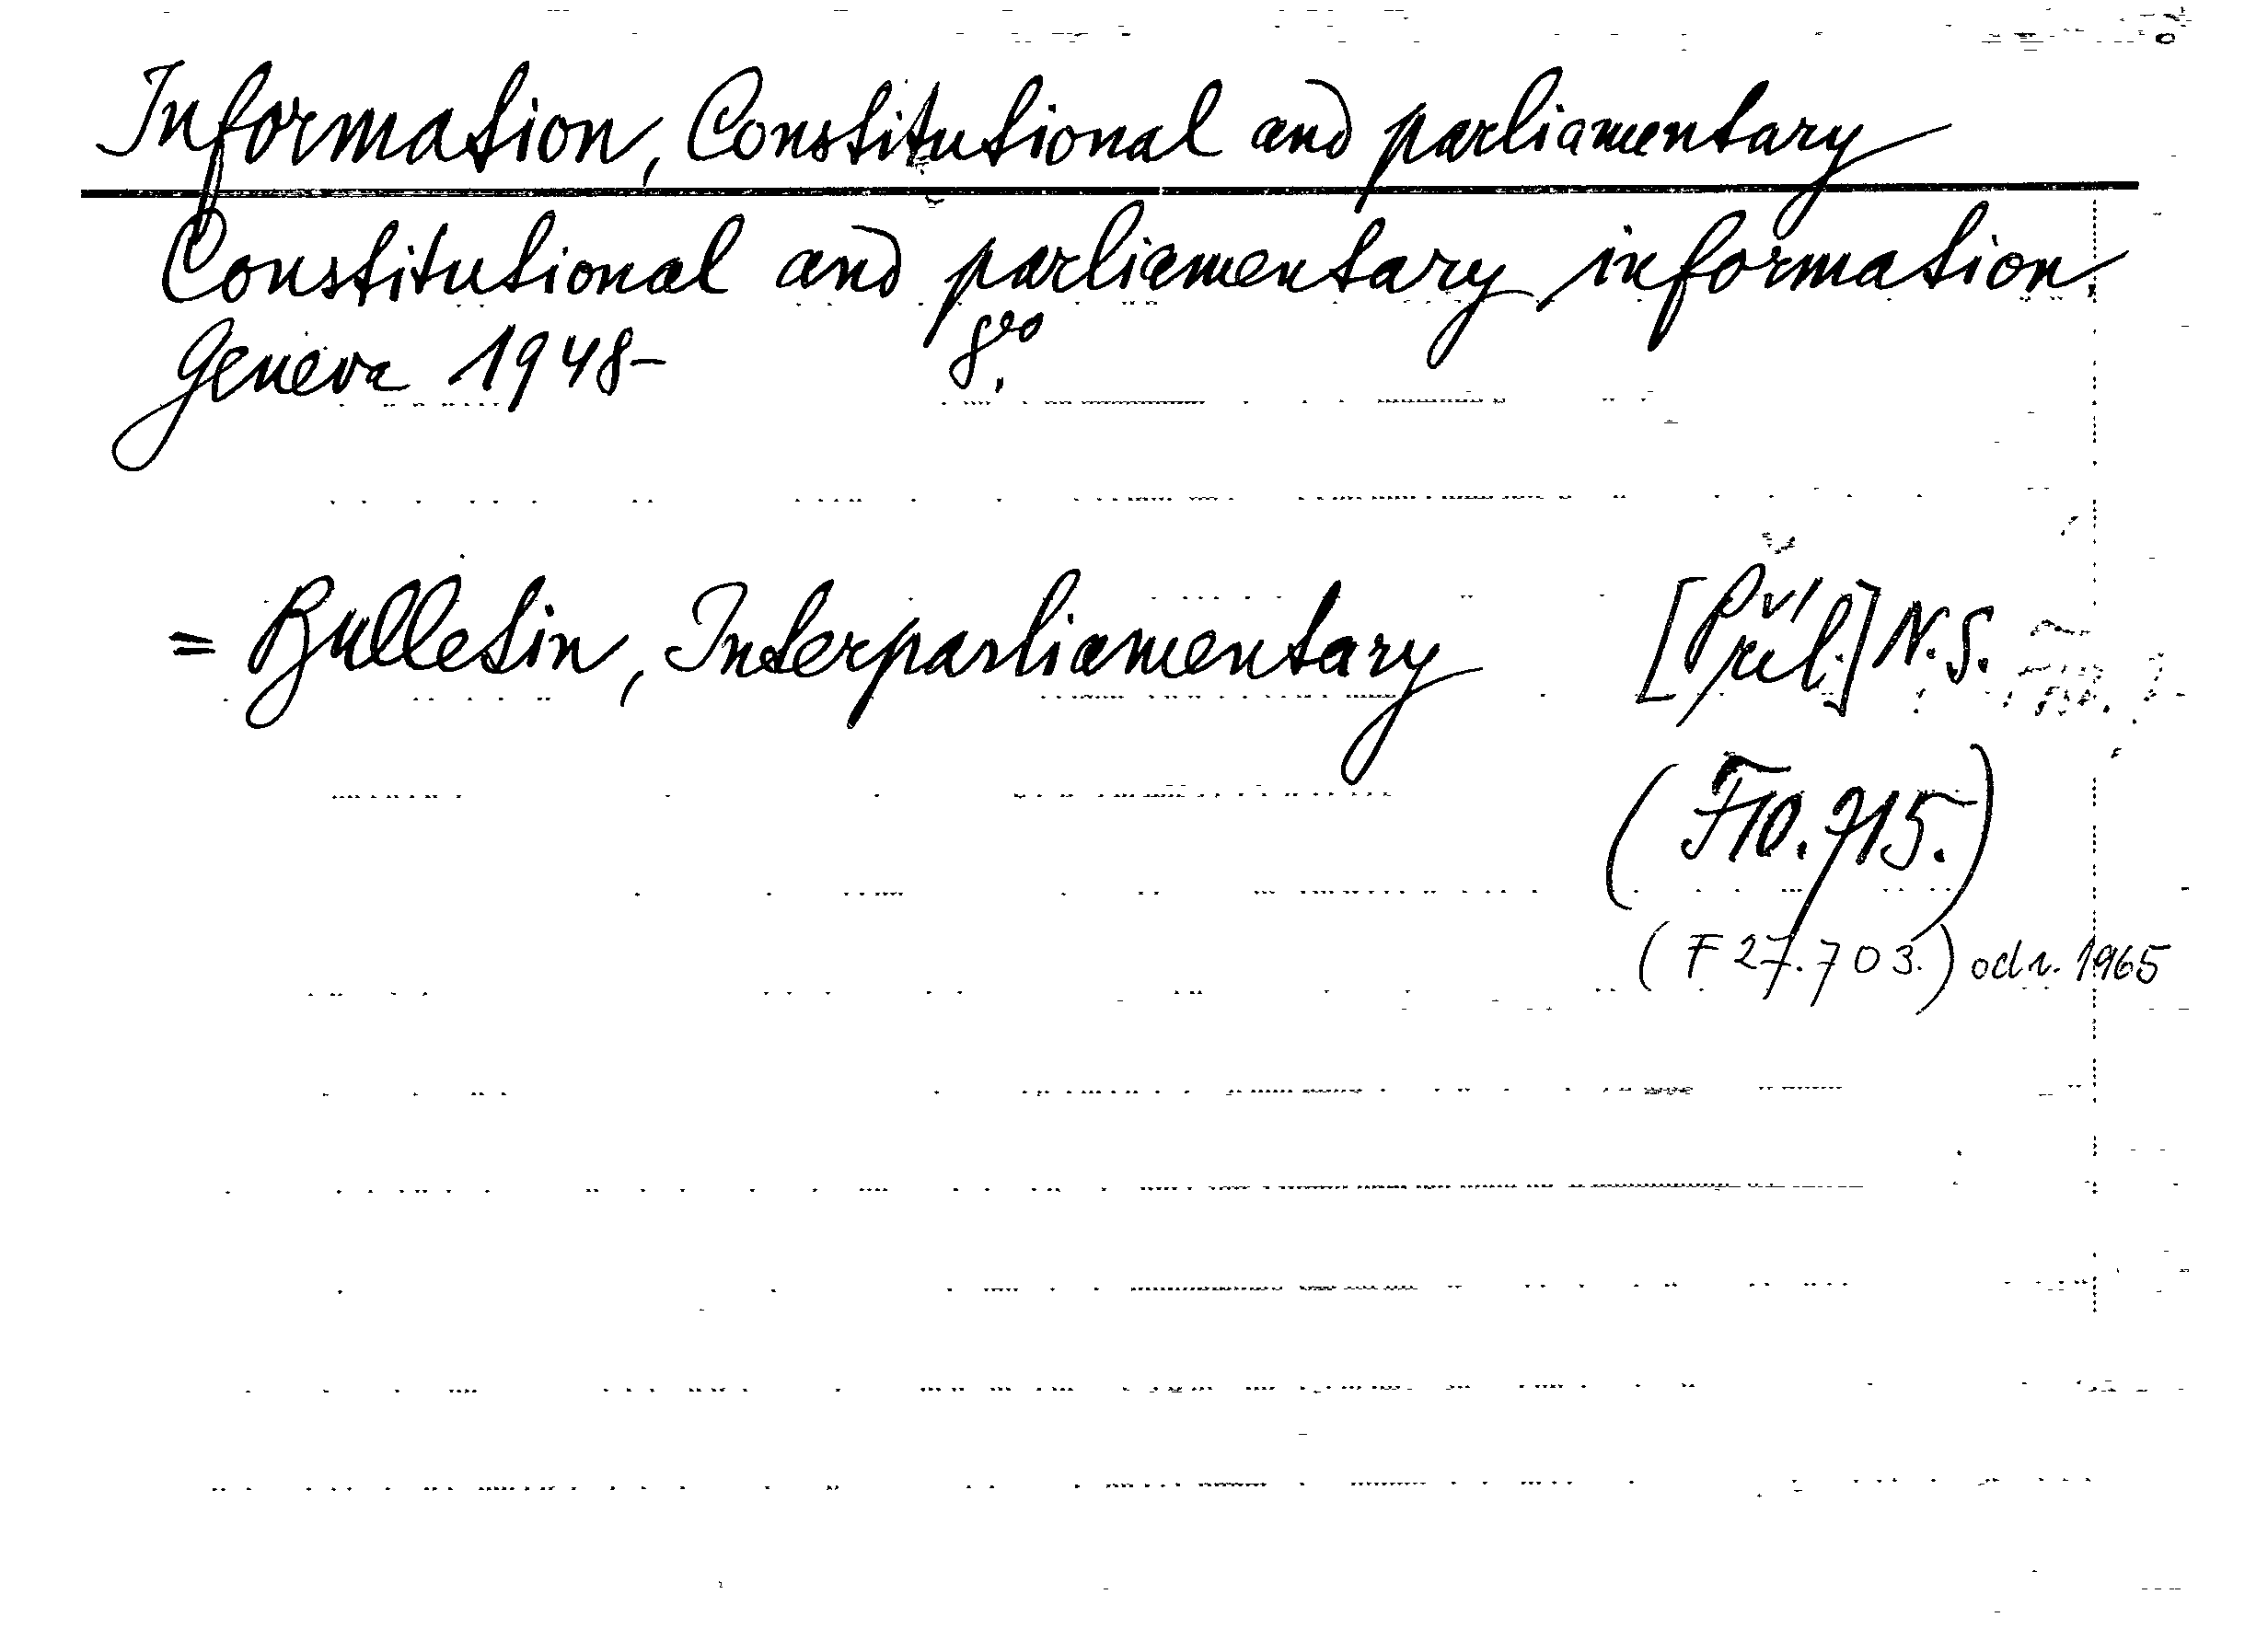 Information, Constitutional and parliamentary
Constitutional and parliamentary information.
Geneva 1948- 8vo,
= Bulletin, Interparliamentary [Příl.] N.S.
(F10.715.)
(F 27.703.) od r. 1965